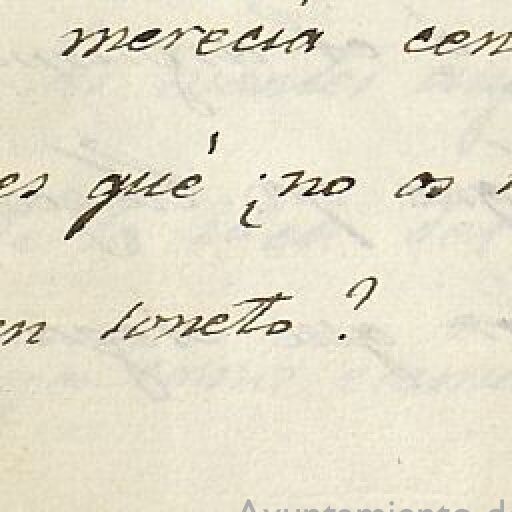 merecia cen
es qué ¿no os
en soneto?
Ayuntamiento d